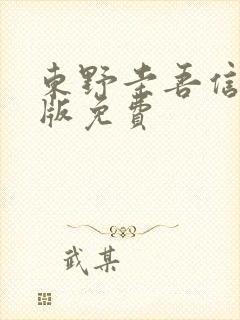 東野圭吾信
版免費
武某